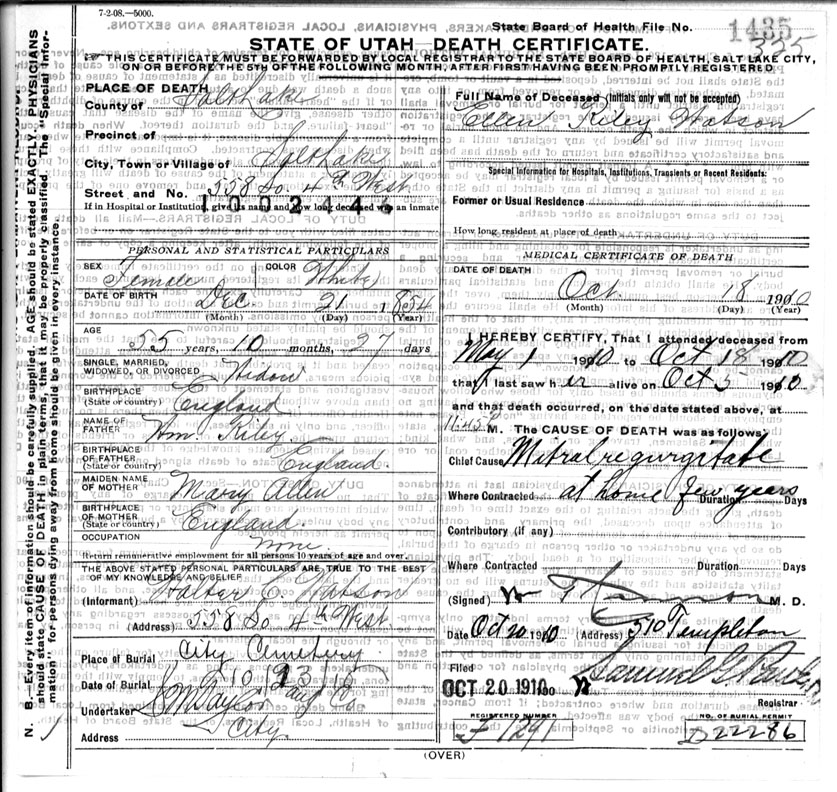 7-2-08.—5000.
State Board of Health File No. 1435
335
STATE OF UTAH—DEATH CERTIFICATE.
THIS CERTIFICATE MUST BE FORWARDED BY LOCAL REGISTRAR TO THE STATE BOARD OF HEALTH, SALT LAKE CITY,
ON OR BEFORE THE 5TH OF THE FOLLOWING MONTH, AFTER FIRST HAVING BEEN PROMPTLY REGISTERED.
N. B.—Every item of information should be carefully supplied. AGE should be stated EXACTLY. PHYSICIANS
should state CAUSE OF DEATH in plain terms, that it may be properly classified. The "Special Infor-
mation" for persons dying away from home should be given in every instance.
PLACE OF DEATH
County of Salt Lake
Precinct of
City, Town or Village of Salt Lake
Street and No. 558 So. 4th West
If in Hospital or Institution, give its name and how long deceased was an inmate
1002446
PERSONAL AND STATISTICAL PARTICULARS
SEX Female COLOR White
DATE OF BIRTH Dec 21 1854
(Month) (Day) (Year)
AGE
55 years, 10 months, 27 days
SINGLE, MARRIED,
WIDOWED, OR DIVORCED Widow
BIRTHPLACE
(State or country) England
NAME OF
FATHER Wm. Kiley
BIRTHPLACE
OF FATHER
(State or country) England.
MAIDEN NAME
OF MOTHER Mary Allen
BIRTHPLACE
OF MOTHER
(State or country) England.
OCCUPATION none
Return remunerative employment for all persons 10 years of age and over.
THE ABOVE STATED PERSONAL PARTICULARS ARE TRUE TO THE BEST
OF MY KNOWLEDGE AND BELIEF
(Informant) Walter C. Watson
(Address) 558 So 4th West
Place of Burial City Cemetery
Date of Burial
Undertaker S. M. Taylor and Co
Address City.
Full Name of Deceased (Initials only will not be accepted)
Ellen Kiley Watson
Special Information for Hospitals, Institutions, Transients or Recent Residents:
Former or Usual Residence
How long resident at place of death
MEDICAL CERTIFICATE OF DEATH
DATE OF DEATH
Oct. 18 1910
(Month) (Day) (Year)
I HEREBY CERTIFY, That I attended deceased from
May 1 1910 to Oct 18 1910
that I last saw her alive on Oct 5 1910
and that death occurred, on the date stated above, at
11:45 M. The CAUSE OF DEATH was as follows:
Chief Cause Mitral regurgitate
Where Contracted at home Duration few years Days
Contributory (if any)
Where Contracted Duration Days
(Signed) M. D.
Date Oct 20 1910 (Address) 510 Templeton
Filed
OCT 20 1910 190
Samuel G. Paul
Registrar
REGISTERED NUMBER
F 1291
NO. OF BURIAL PERMIT
D22286
(OVER)